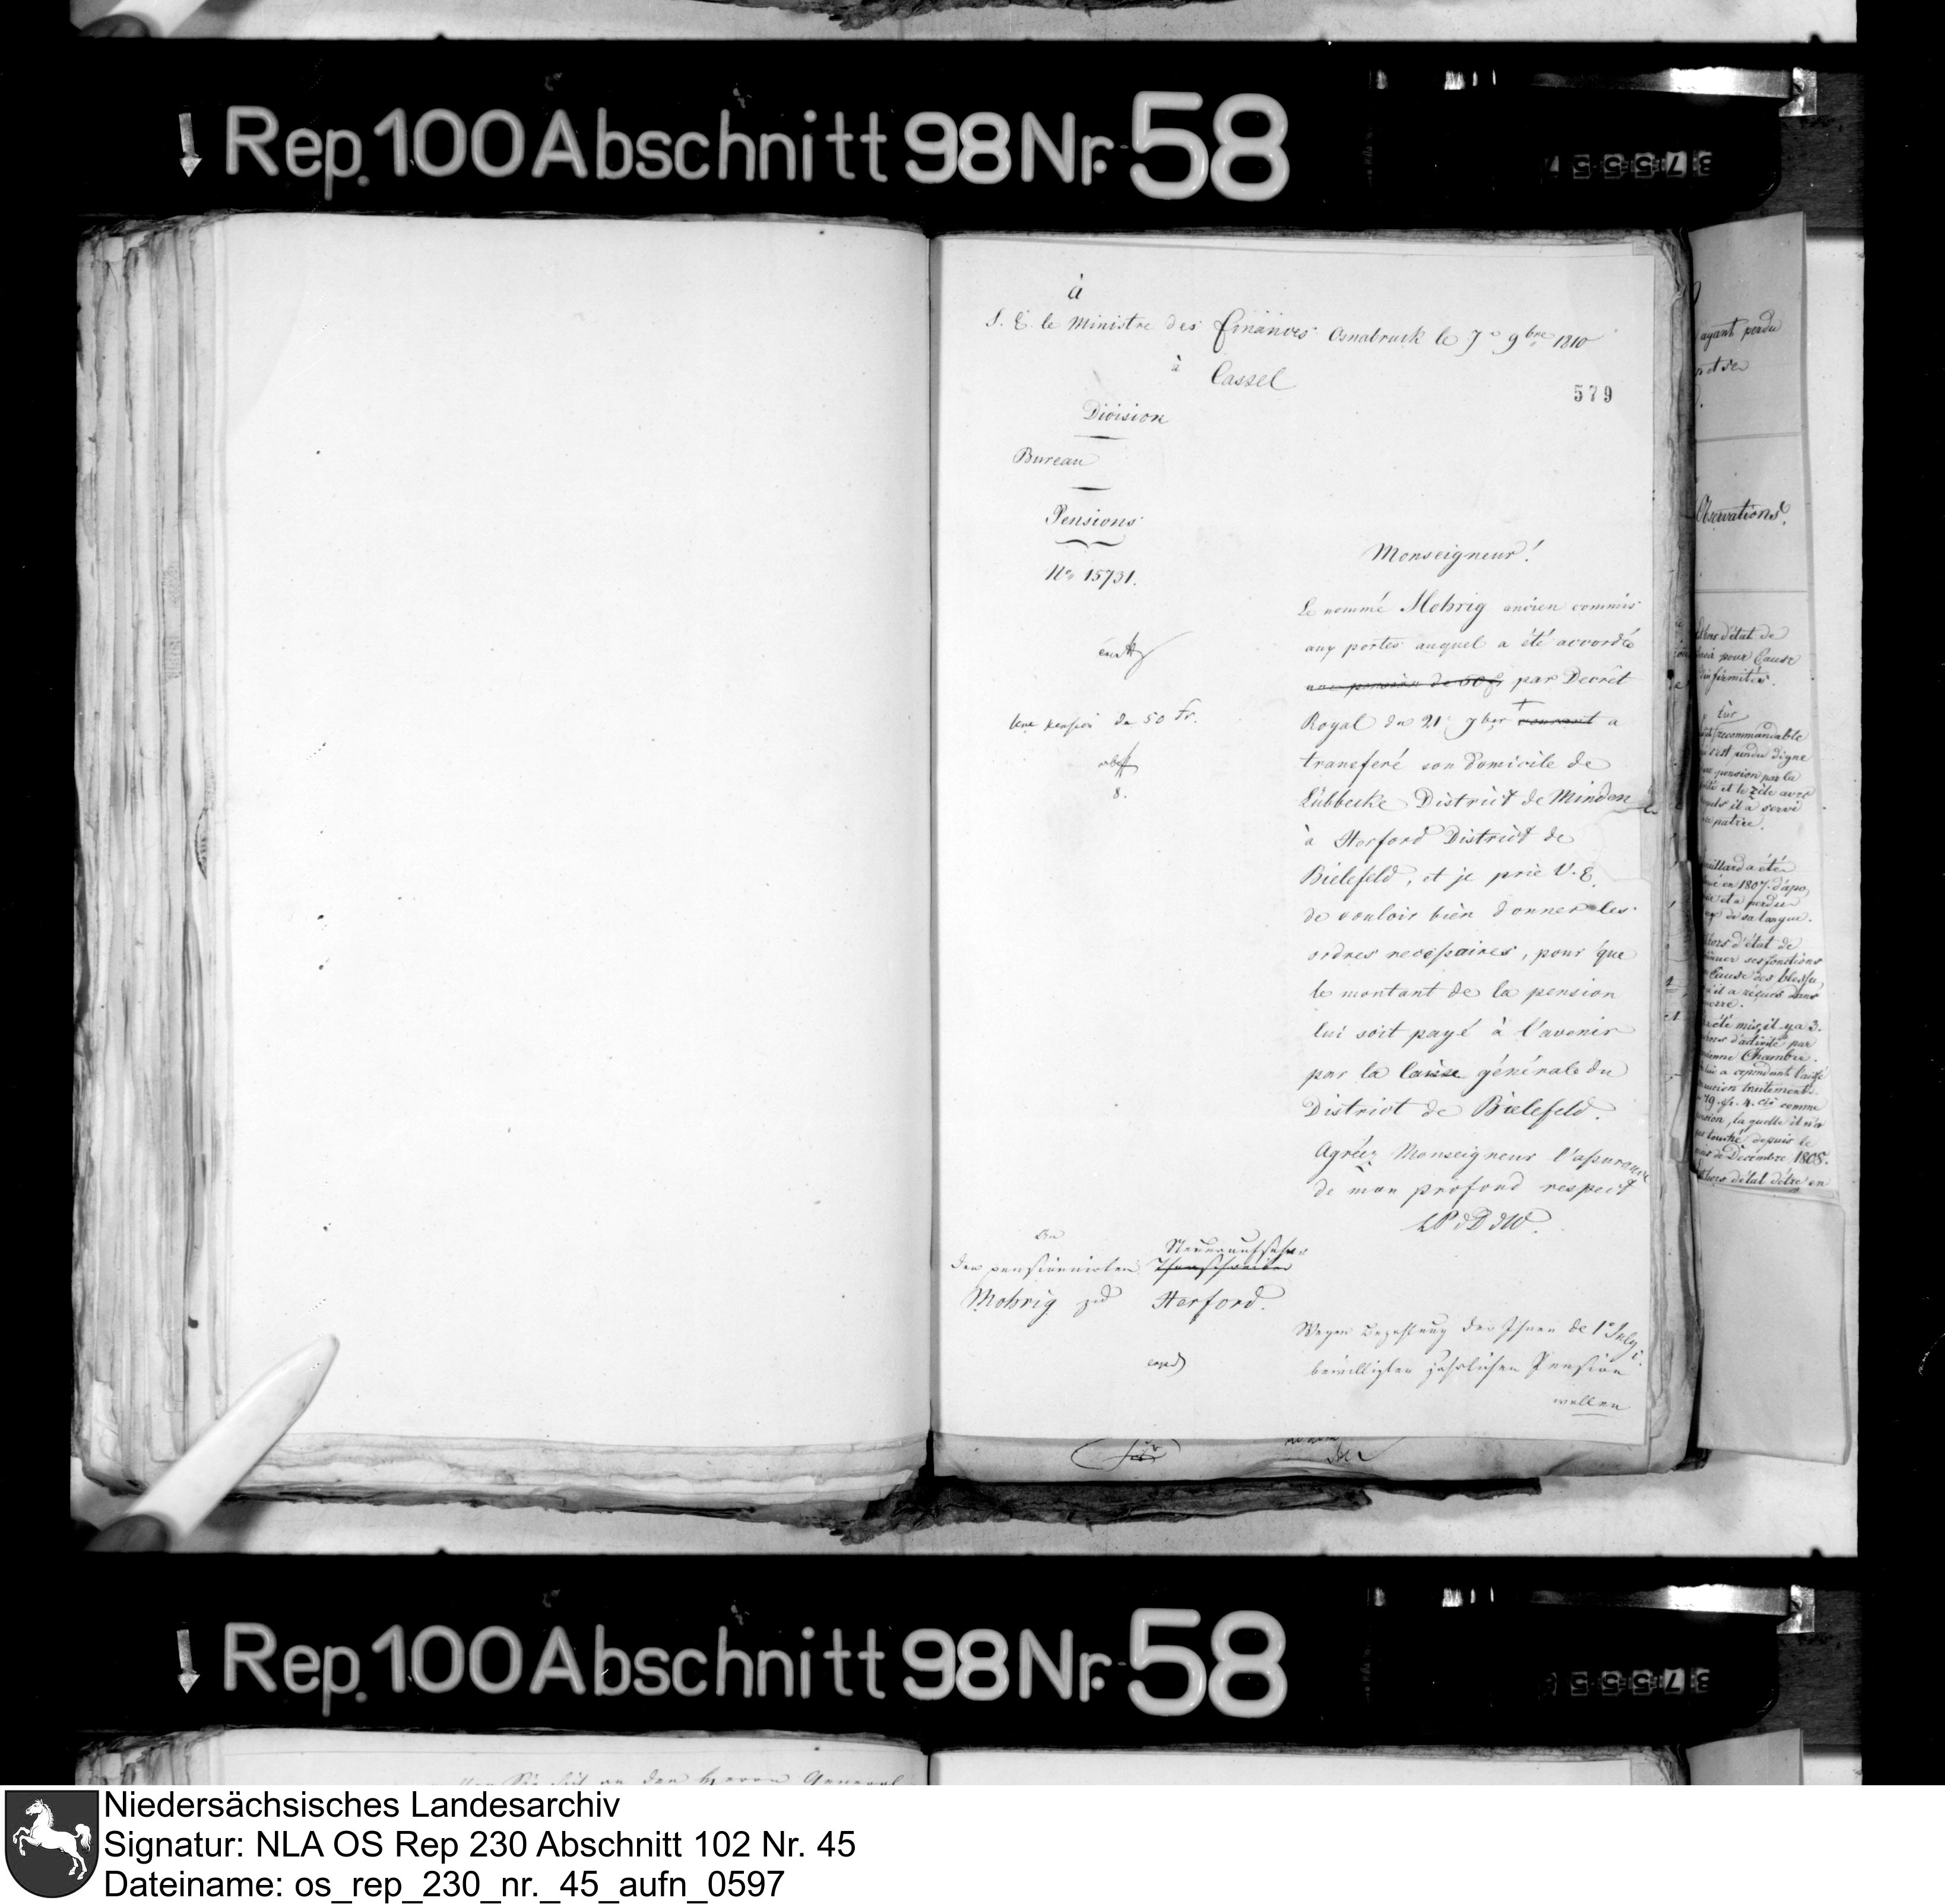 Rep. 100 Abschnitt 98 Nr. 58
à
S. E. le Ministre des Finances Osnabruck le 7e 9bre 1810
à
Cassel
579
Division
Bureau
Pensions
No 15731.
Monseigneur!
Le nommé Mohrig ancien commis
aux portes auquel a été accordée
une pension de 50 f. par Decrêt
Royal du 21 7ber courant a
une pension de 50 Fr.
transferé son Domicile de
8.
Lübbecke District de Minden
à Herford District de
Bielefeld, et je prie V. E.
de vouloir bien donner les
ordres necessaires, pour que
le montant de la pension
lui soit payé à l'avenir
par la Caisse générale du
District de Bielefeld.
Agréez Monseigneur l'assurance
de mon profond respect
LPdDdW.
An
den pensionnirten Steueraufseher
Thorschreiber
Mohrig zu Herford.
Wegen Bezahlung der Ihnen de 1e July
bewilligten jährlichen Pension
wollen
ayant perdu
Observations.
hors d'état de
pour Cause
d'infirmités.
recommandable
s'est rendu digne
pension par la
et le zèle avec
il a servi
patrie.
vieillard a été
en 1807. d'apo
et a perdu
de sa langue.
hors d'état de
ses fonctions
Cause des blessu
qu'il a reçues dans
guerre.
été mis, il y a 3.
hors d'activité par
ancienne Chambre.
lui a cependant laissé
ancien traitement
79. fr. 4. cts comme
pension, la quelle il n'a
touché depuis le
mois de Decembre 1808.
hors d'état d'être en
Rep. 100 Abschnitt 98 Nr. 58
Sie sich an den Herrn General
Niedersächsisches Landesarchiv
Signatur: NLA OS Rep 230 Abschnitt 102 Nr. 45
Dateiname: os_rep_230_nr._45_aufn_0597